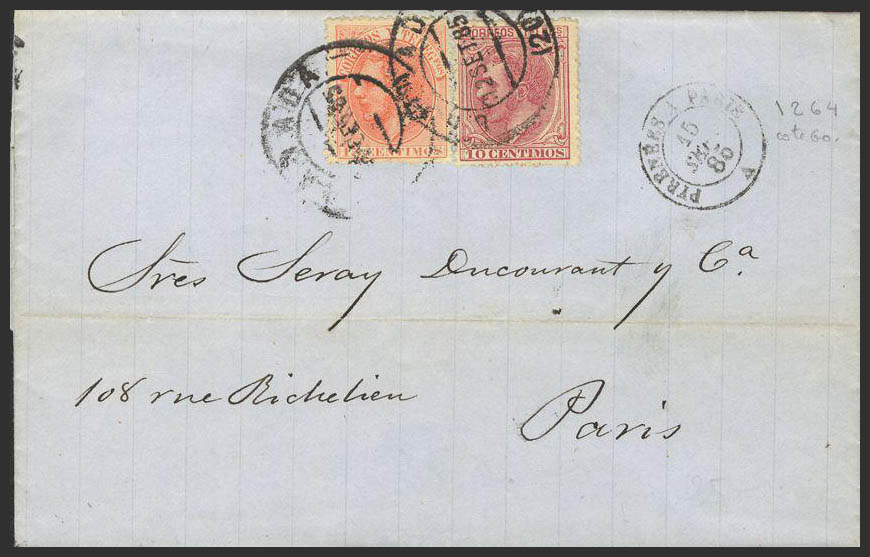 CORREOS
15 CENTIMOS
10 CENTIMOS
PYRENEES A PARIS
15
86
A
1264
cote 60.
Sres Seray Ducourant y Cª
108 rue Richelieu
Paris